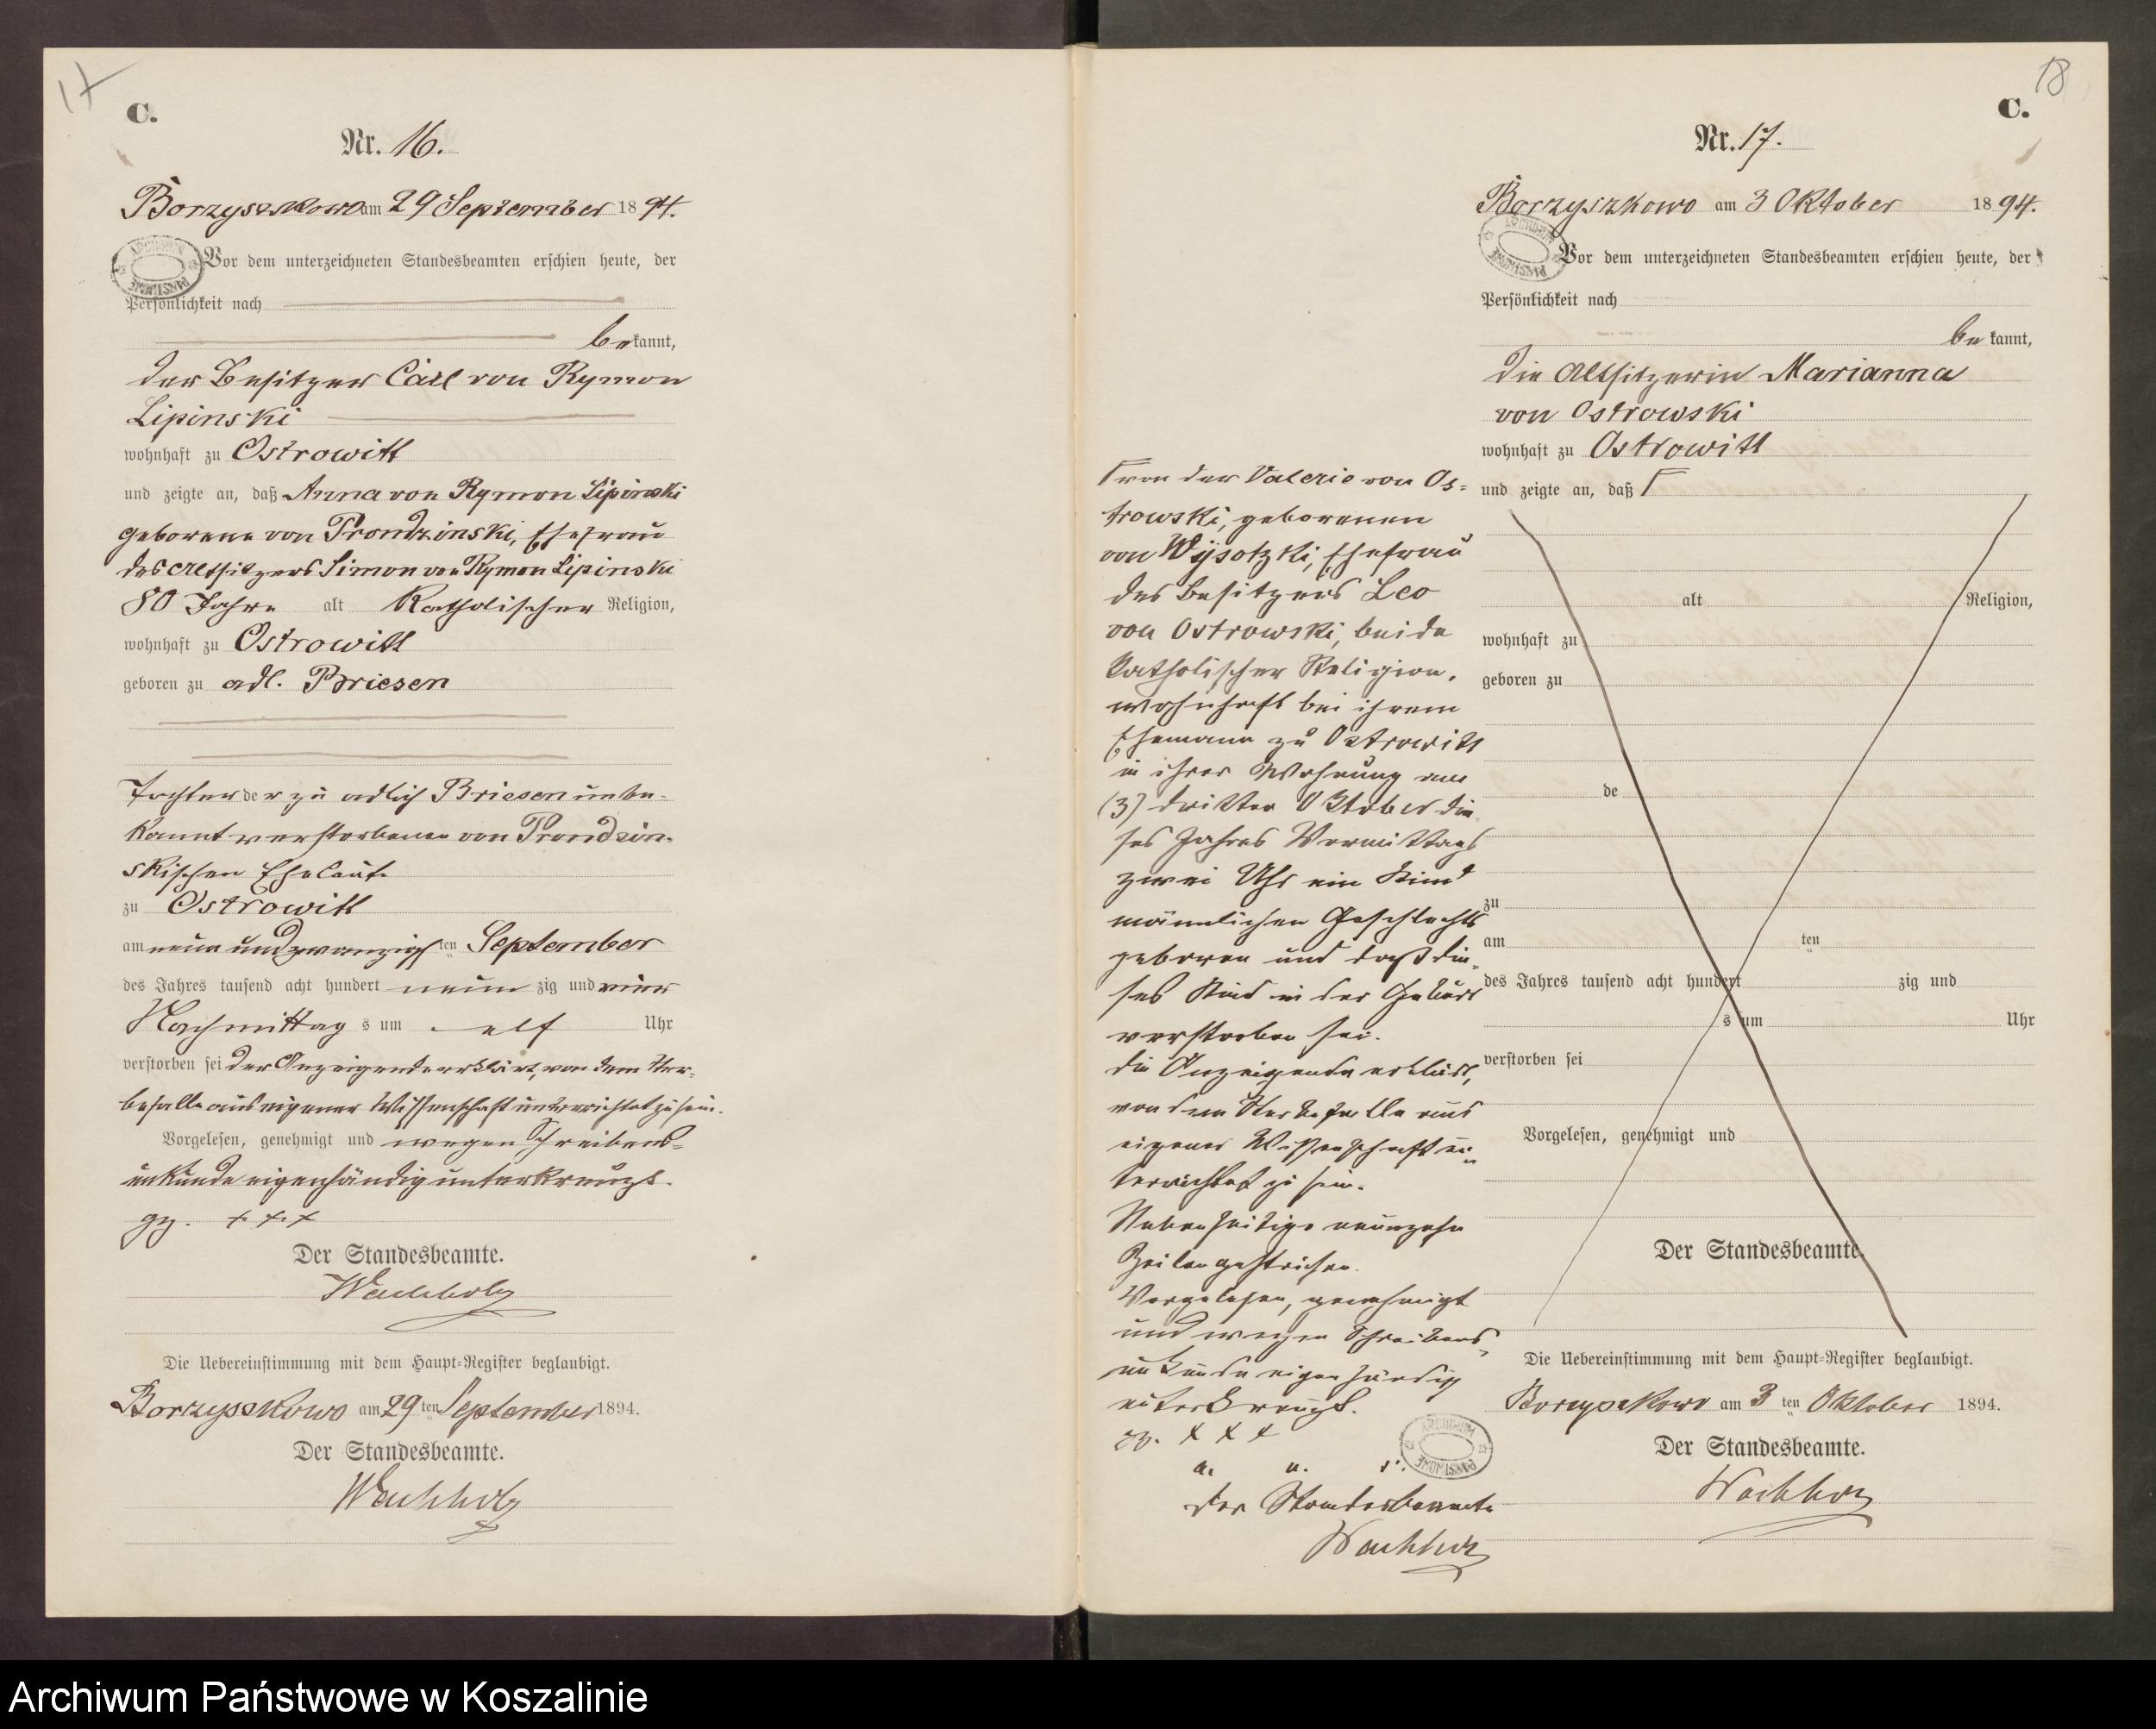 17
C.
Nr. 16.
Borzyszkowo am 29 September 1894.
Vor dem unterzeichneten Standesbeamten erschien heute, der
Persönlichkeit nach
bekannt,
der Besitzer Carl von Rymon
Lipinski
wohnhaft zu Ostrowitt
und zeigte an, daß Anna von Rymon Lipinski
geborene von Prondzinski, Ehefrau
des Altsitzers Simon von Rymon Lipinski
80 Jahre alt Katholischer Religion,
wohnhaft zu Ostrowitt
geboren zu adl. Briesen
Tochter der zu adlich Briesen unbe-
kannt verstorbenen von Prondzin-
skischen Eheleute
zu Ostrowitt
am neun und zwanzigsten September
des Jahres tausend acht hundert neunzig und vier
Nachmittags um elf Uhr
verstorben sei der Anzeigende erklärt, von dem Ster-
befalle aus eigener Wissenschaft unterrichtet zu sein.
Vorgelesen, genehmigt und wegen Schreibens-
unkunde eigenhändig unterkreuzt.
gz. + + +
Der Standesbeamte.
Wachholz
Die Uebereinstimmung mit dem Haupt-Register beglaubigt.
Borzyszkowo am 29ten September 1894.
Der Standesbeamte.
Wachholz
18
C.
Nr. 17.
Borzyszkowo am 3 Oktober 1894.
Vor dem unterzeichneten Standesbeamten erschien heute, der
Persönlichkeit nach
bekannt,
die Altsitzerin Marianna
von Ostrowski
wohnhaft zu Ostrowitt
und zeigte an, daß Γ
Γ von der Valerie von Os-
trowski, geborenen
von Wysotzki, Ehefrau
des Besitzers Leo
von Ostrowski, beide
Katholischer Religion,
wohnhaft bei ihrem
Ehemann zu Ostrowitt
in ihrer Wohnung am
(3) dritten Oktober die-
ses Jahres Vormittags
zwei Uhr ein Kind
männlichen Geschlechts
geboren und daß die-
ses Kind in der Geburt
verstorben sei.
die Anzeigende erklärt,
von dem Sterbefalle aus
eigener Wissenschaft un-
terrichtet zu sein.
Nebenseitige neunzehn
Zeilen gestrichen.
Vorgelesen, genehmigt
und wegen Schreibens-
unkunde eigenhändig
unterkreuzt.
gz. + + +
a. u. s.
Der Standesbeamte
Wachholz
alt Religion,
wohnhaft zu
geboren zu
de
zu
am ten
des Jahres tausend acht hundert zig und
s um Uhr
verstorben sei
Vorgelesen, genehmigt und
Der Standesbeamte.
Die Uebereinstimmung mit dem Haupt-Register beglaubigt.
Borzyszkowo am 3ten Oktober 1894.
Der Standesbeamte.
Wachholz
ARCHIWUM PAŃSTWOWE
Archiwum Państwowe w Koszalinie